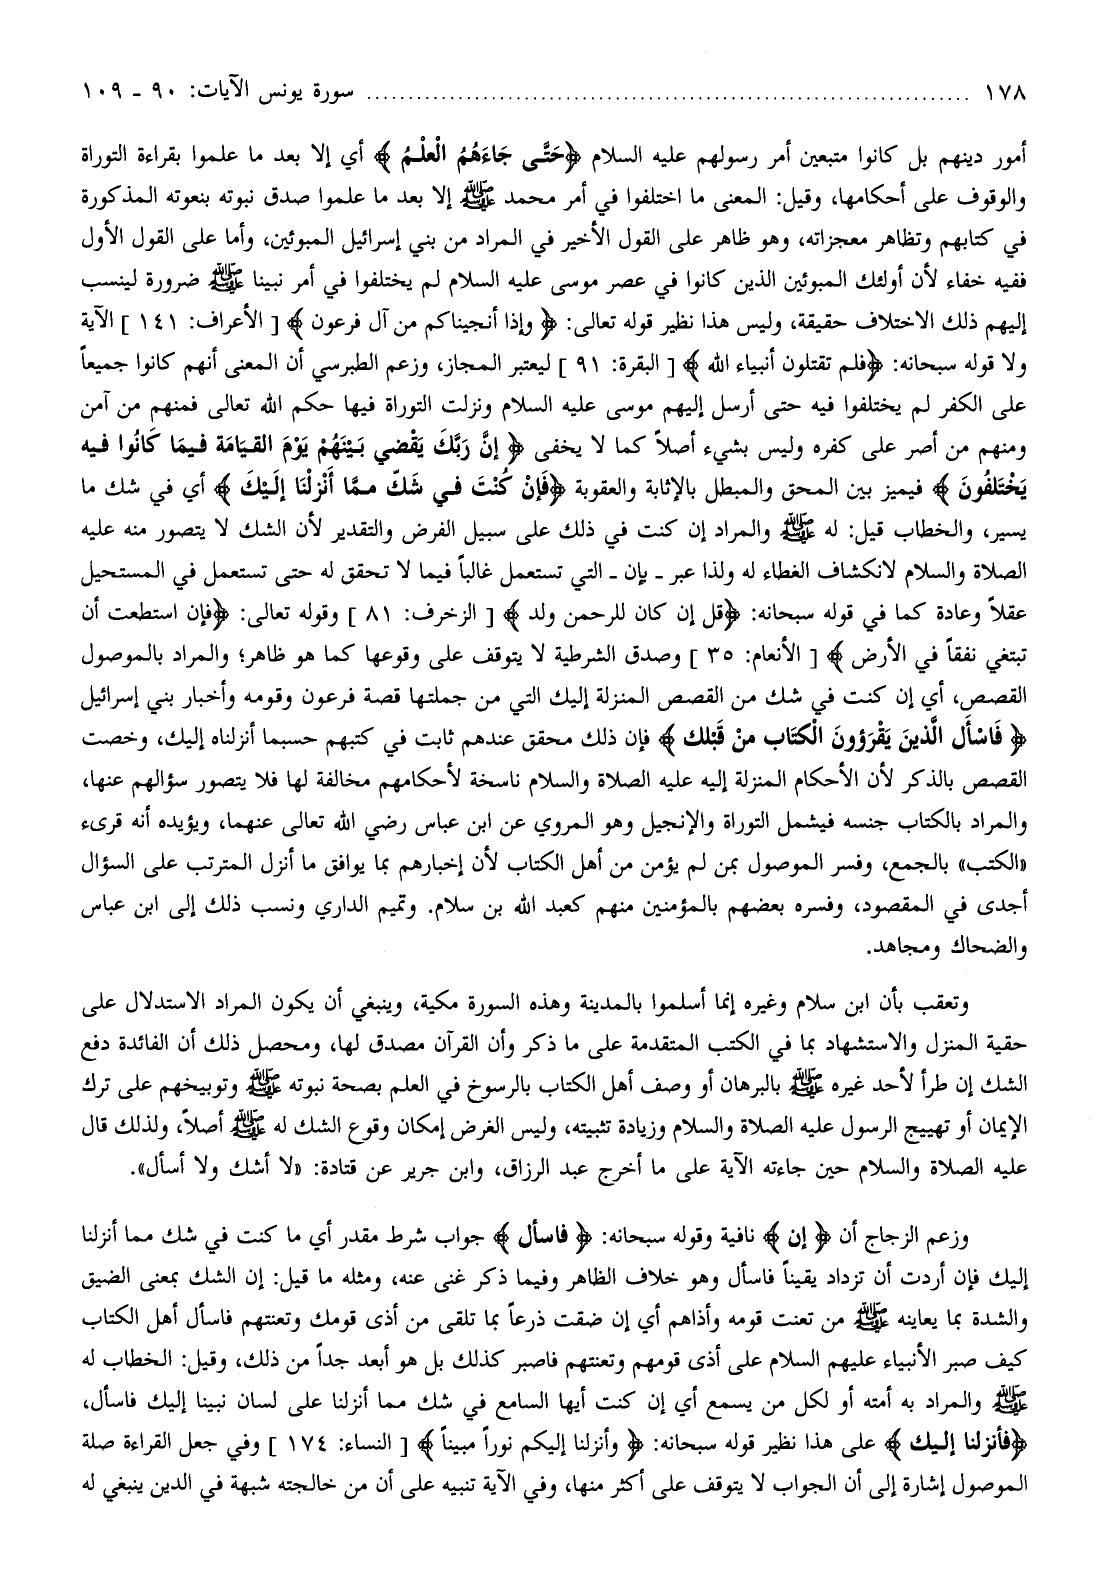 ١٧٨ ........................................ سورة يونس الآيات: ٩٠ ـ ١٠٩
أمور دينهم بل كانوا متبعين أمر رسولهم عليه السلام ﴿حَتَّى جَاءَهُمُ الْعِلْمُ﴾ أي إلا بعد ما علموا بقراءة التوراة
والوقوف على أحكامها، وقيل: المعنى ما اختلفوا في أمر محمد ﷺ إلا بعد ما علموا صدق نبوته بنعوته المذكورة
في كتابهم وتظاهر معجزاته، وهو ظاهر على القول الأخير في المراد من بني إسرائيل المبوئين، وأما على القول الأول
ففيه خفاء لأن أولئك المبوئين الذين كانوا في عصر موسى عليه السلام لم يختلفوا في أمر نبينا ﷺ ضرورة لينسب
إليهم ذلك الاختلاف حقيقة، وليس هذا نظير قوله تعالى: ﴿وإذا أنجيناكم من آل فرعون﴾ [ الأعراف: ١٤١ ] الآية
ولا قوله سبحانه: ﴿فلم تقتلون أنبياء الله﴾ [ البقرة: ٩١ ] ليعتبر المجاز، وزعم الطبرسي أن المعنى أنهم كانوا جميعاً
على الكفر لم يختلفوا فيه حتى أرسل إليهم موسى عليه السلام ونزلت التوراة فيها حكم الله تعالى فمنهم من آمن
ومنهم من أصر على كفره وليس بشيء أصلاً كما لا يخفى ﴿إنَّ رَبَّكَ يَقْضي بَيْنَهُمْ يَوْمَ القيَامَة فيمَا كَانُوا فيه
يَخْتَلفُونَ﴾ فيميز بين المحق والمبطل بالإثابة والعقوبة ﴿فَإنْ كُنْتَ في شَكّ ممَّا أَنْزلْنَا إلَيْكَ﴾ أي في شك ما
يسير، والخطاب قيل: له ﷺ والمراد إن كنت في ذلك على سبيل الفرض والتقدير لأن الشك لا يتصور منه عليه
الصلاة والسلام لانكشاف الغطاء له ولذا عبر ـ بإن ـ التي تستعمل غالباً فيما لا تحقق له حتى تستعمل في المستحيل
عقلاً وعادة كما في قوله سبحانه: ﴿قل إن كان للرحمن ولد﴾ [ الزخرف: ٨١ ] وقوله تعالى: ﴿فإن استطعت أن
تبتغي نفقاً في الأرض﴾ [ الأنعام: ٣٥ ] وصدق الشرطية لا يتوقف على وقوعها كما هو ظاهر؛ والمراد بالموصول
القصص، أي إن كنت في شك من القصص المنزلة إليك التي من جملتها قصة فرعون وقومه وأخبار بني إسرائيل
﴿فَاسْأَل الَّذينَ يَقْرَؤونَ الْكتَابَ منْ قَبْلك﴾ فإن ذلك محقق عندهم ثابت في كتبهم حسبما أنزلناه إليك، وخصت
القصص بالذكر لأن الأحكام المنزلة إليه عليه الصلاة والسلام ناسخة لأحكامهم مخالفة لها فلا يتصور سؤالهم عنها،
والمراد بالكتاب جنسه فيشمل التوراة والإنجيل وهو المروي عن ابن عباس رضي الله تعالى عنهما، ويؤيده أنه قرىء
«الكتب» بالجمع، وفسر الموصول بمن لم يؤمن من أهل الكتاب لأن إخبارهم بما يوافق ما أنزل المترتب على السؤال
أجدى في المقصود، وفسره بعضهم بالمؤمنين منهم كعبد الله بن سلام. وتميم الداري ونسب ذلك إلى ابن عباس
والضحاك ومجاهد.
وتعقب بأن ابن سلام وغيره إنما أسلموا بالمدينة وهذه السورة مكية، وينبغي أن يكون المراد الاستدلال على
حقية المنزل والاستشهاد بما في الكتب المتقدمة على ما ذكر وأن القرآن مصدق لها، ومحصل ذلك أن الفائدة دفع
الشك إن طرأ لأحد غيره ﷺ بالبرهان أو وصف أهل الكتاب بالرسوخ في العلم بصحة نبوته ﷺ وتوبيخهم على ترك
الإيمان أو تهييج الرسول عليه الصلاة والسلام وزيادة تثبيته، وليس الغرض إمكان وقوع الشك له ﷺ أصلاً، ولذلك قال
عليه الصلاة والسلام حين جاءته الآية على ما أخرج عبد الرزاق، وابن جرير عن قتادة: «لا أشك ولا أسأل».
وزعم الزجاج أن ﴿إن﴾ نافية وقوله سبحانه: ﴿فاسأل﴾ جواب شرط مقدر أي ما كنت في شك مما أنزلنا
إليك فإن أردت أن تزداد يقيناً فاسأل وهو خلاف الظاهر وفيما ذكر غنى عنه، ومثله ما قيل: إن الشك بمعنى الضيق
والشدة بما يعاينه ﷺ من تعنت قومه وأذاهم أي إن ضقت ذرعاً بما تلقى من أذى قومك وتعنتهم فاسأل أهل الكتاب
كيف صبر الأنبياء عليهم السلام على أذى قومهم وتعنتهم فاصبر كذلك بل هو أبعد جداً من ذلك، وقيل: الخطاب له
ﷺ والمراد به أمته أو لكل من يسمع أي إن كنت أيها السامع في شك مما أنزلنا على لسان نبينا إليك فاسأل،
﴿فأنزلنا إليك﴾ على هذا نظير قوله سبحانه: ﴿وأنزلنا إليكم نوراً مبيناً﴾ [ النساء: ١٧٤ ] وفي جعل القراءة صلة
الموصول إشارة إلى أن الجواب لا يتوقف على أكثر منها، وفي الآية تنبيه على أن من خالجته شبهة في الدين ينبغي له